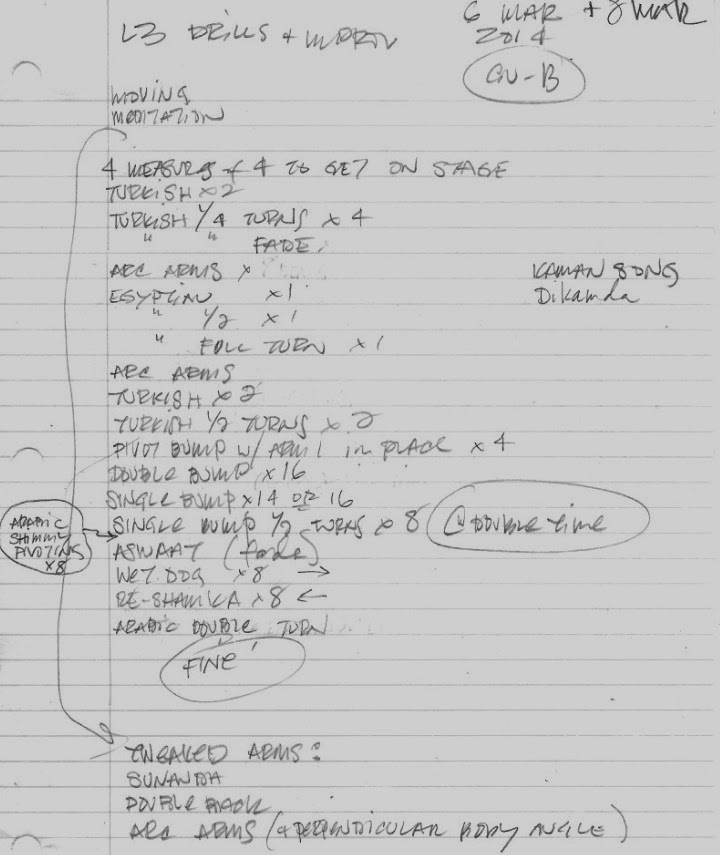 6 MAR + 8 MAR
2014
L3 DRILLS + IMPROV
GU-B
MOVING
MEDITATION
4 MEASURES of 4 TO GET ON STAGE
TURKISH x2
TURKISH 1/4 TURNS x 4
" " FADE
ARC ARMS x
KAMAN SONG
Dikanda
EGYPTIAN x1
" 1/2 x1
" FULL TURN x1
ARC ARMS
TURKISH x2
TURKISH 1/2 TURNS x 2
PIVOT BUMP w/ ARM 1 in PLACE x 4
DOUBLE BUMP x16
SINGLE BUMP x14 OR 16
SINGLE BUMP 1/2 TURNS x 8 @ DOUBLE time
ARABIC
SHIMMY
PIVOTING
x8
ASWAAT (fade)
WET DOG x8 →
RE-SHAMKA x8 ←
ARABIC DOUBLE TURN
FINE
TWEAKED ARMS:
SUNANDA
DOUBLE BACK
ARC ARMS (+ PERPENDICULAR BODY ANGLE)